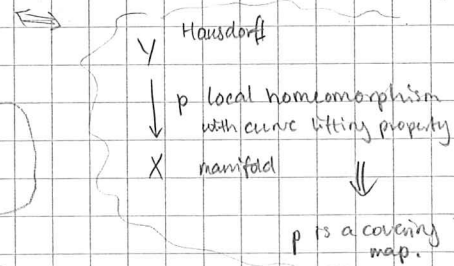 Hausdorff
Y
p local homeomorphism
with curve lifting property
X manifold
p is a covering
map.